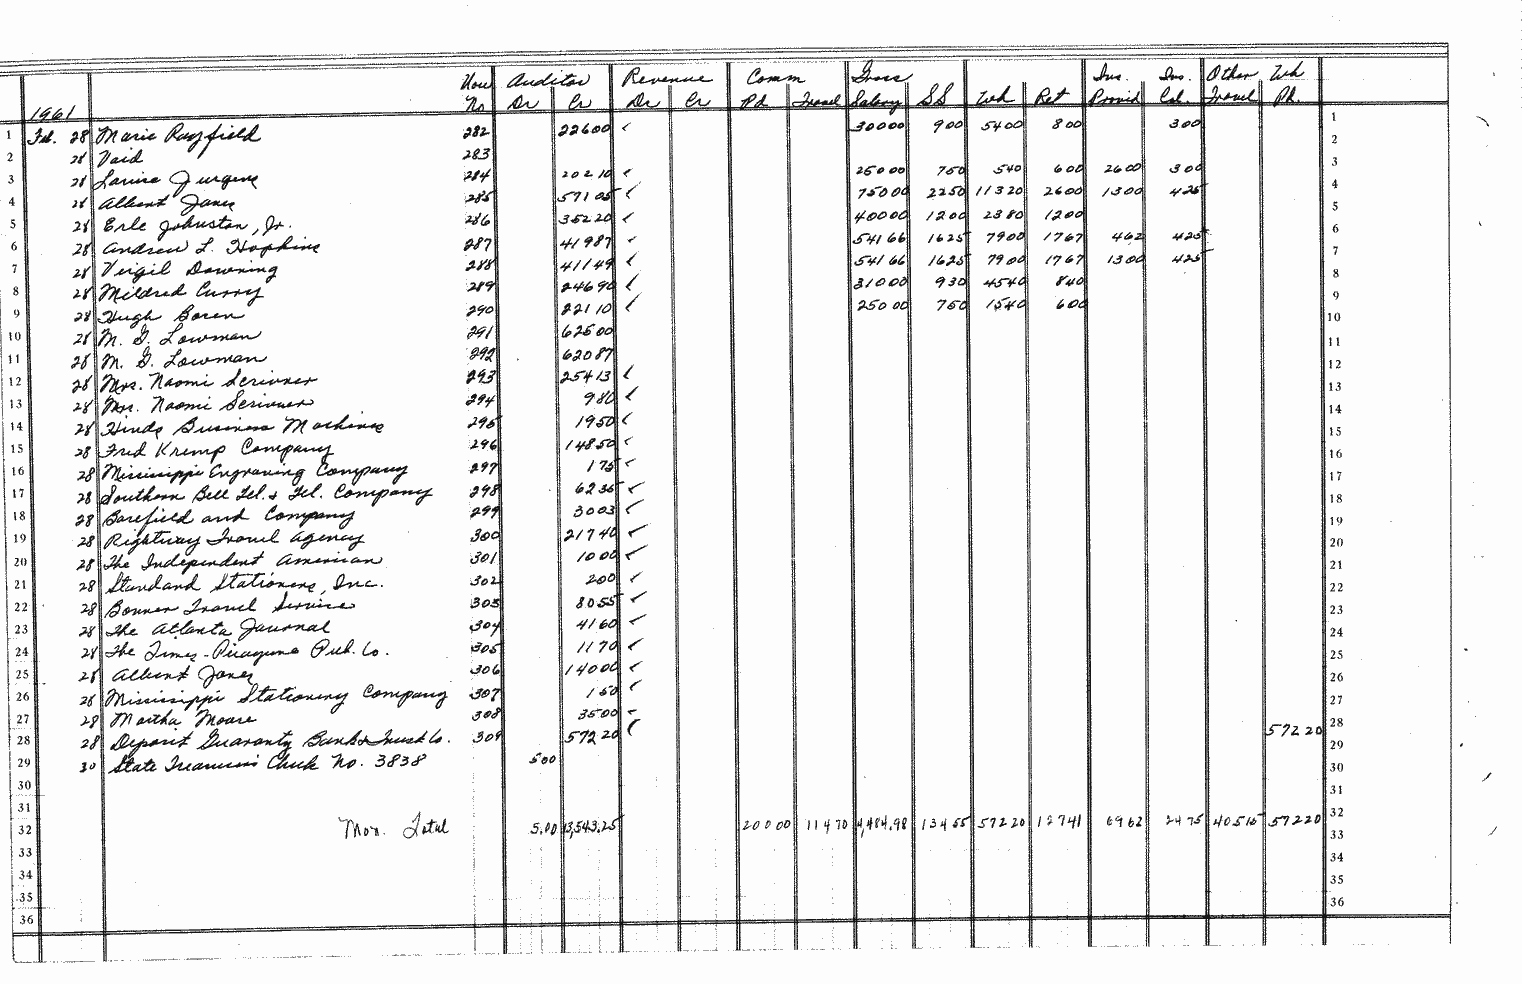 Vou Auditor Revenue Comm Gross Ins. Ins. Other Wh
1961 No Dr Cr Dr Cr Pd Travel Salary SS Wh Ret Provid Col. Travel Pd.
1 Feb. 28 Marie Rayfield 282 22600 ✓ 30000 900 5400 800 300 1
2 28 Void 283 2
3 28 Louise Jurgens 284 20210 ✓ 25000 750 540 600 2600 300 3
4 28 Albert Jones 285 57105 ✓ 75000 2250 11320 2600 1300 425 4
5 28 Erle Johnston, Jr. 286 35220 ✓ 40000 1200 2380 1200 5
6 28 Andrew L. Hopkins 287 41987 ✓ 54166 1625 7900 1767 462 425 6
7 28 Virgil Downing 288 41149 ✓ 54166 1625 7900 1767 1300 425 7
8 28 Mildred Curry 289 24690 ✓ 31000 930 4540 840 8
9 28 Hugh Boren 290 22110 ✓ 25000 750 1540 600 9
10 28 M. G. Lowman 291 62500 10
11 28 M. G. Lowman 292 62087 11
12 28 Mrs. Naomi Scrivner 293 25413 ✓ 12
13 28 Mrs. Naomi Scrivner 294 980 ✓ 13
14 28 Hinds Business Machines 295 1950 ✓ 14
15 28 Fred Kremp Company 296 14850 ✓ 15
16 28 Mississippi Engraving Company 297 175 ✓ 16
17 28 Southern Bell Tel. & Tel. Company 298 6235 ✓ 17
18 28 Barefield and Company 299 3003 ✓ 18
19 28 Rightway Travel Agency 300 21740 ✓ 19
20 28 The Independent American 301 1000 ✓ 20
21 28 Standard Stationers, Inc. 302 200 ✓ 21
22 28 Bonner Travel Service 303 8055 ✓ 22
23 28 The Atlanta Journal 304 4160 ✓ 23
24 28 The Times-Picayune Pub. Co. 305 1170 ✓ 24
25 28 Albert Jones 306 14000 ✓ 25
26 28 Mississippi Stationery Company 307 150 ✓ 26
27 28 Martha Moore 308 3500 ✓ 27
28 28 Deposit Guaranty Bank & Trust Co. 309 57220 ✓ 57220 28
29 30 State Treasurers Check No. 3838 500 29
30 30
31 31
32 Mon. Total 5.00 13,543.25 20000 11470 4,484.98 13455 57220 12741 6962 2475 40515 57220 32
33 33
34 34
35 35
36 36